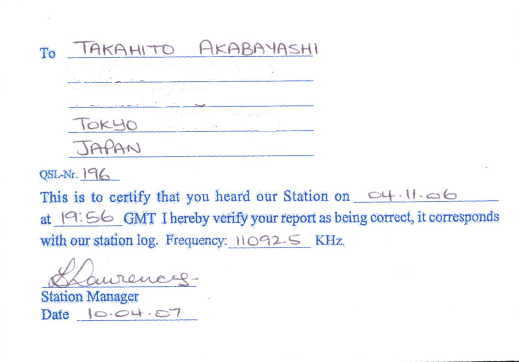 To TAKAHITO AKABAYASHI
TOKYO
JAPAN
QSL-Nr. 196
This is to certify that you heard our Station on 04.11.06
at 19:56 GMT I hereby verify your report as being correct, it corresponds
with our station log. Frequency: 11092.5 KHz.
Station Manager
Date 10.04.07